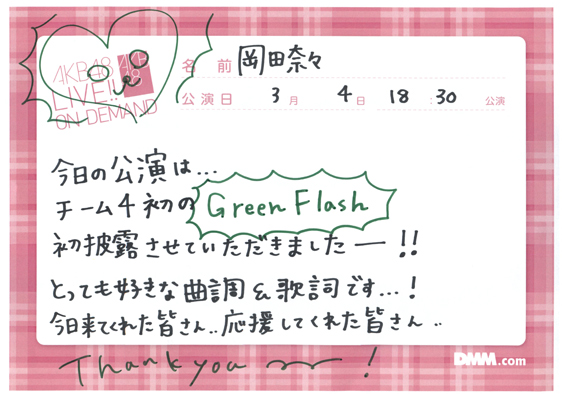 AKB48 AKB48
LIVE!!
ON-DEMAND
名前 岡田奈々
公演日 3月 4日 18:30 公演
今日の公演は...
チーム4初の Green Flash
初披露させていただきましたー!!
とっても好きな曲調&歌詞です...!
今日来てくれた皆さん..応援してくれた皆さん..
Thank you ー!
DMM.com